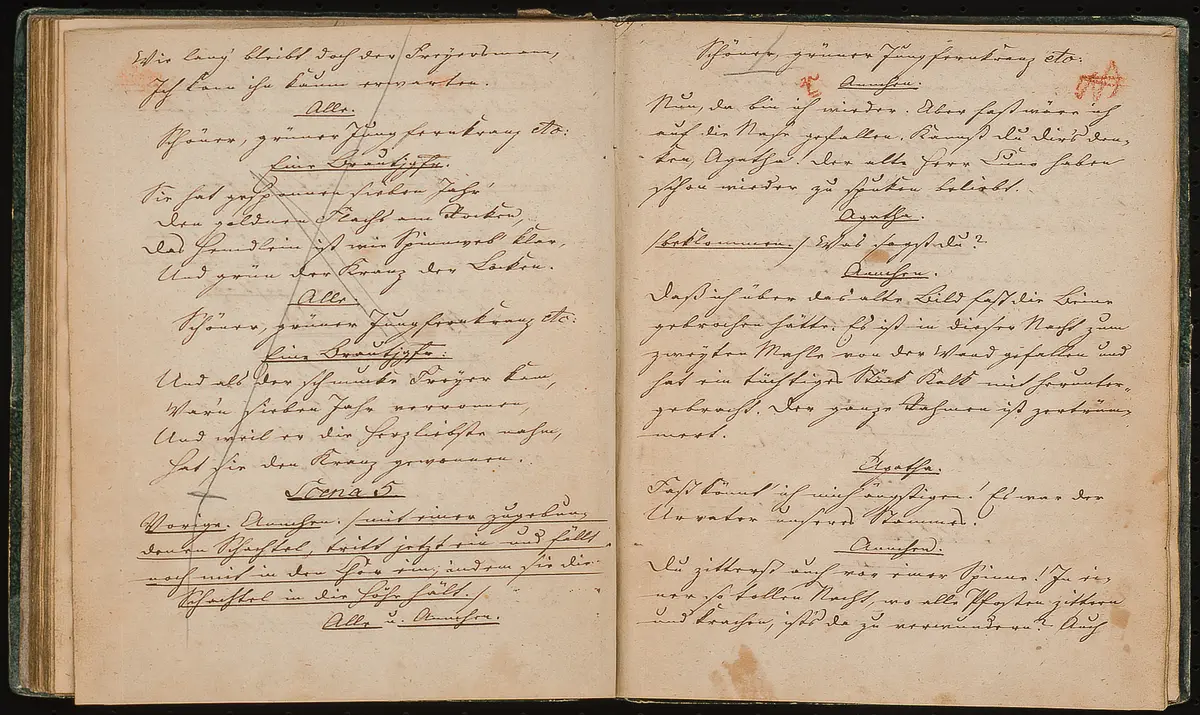 Wie lang bleibt doch der Freyersmann,
Ich kann ihn kaum erwarten.
Alle.
Schöner, grüner Jungfernkranz etc:
Eine Brautjgfr.
Sie hat gesponnen sieben Jahr'
Den goldnen Flachs am Rocken,
Das Hemdlein ist wie Spinnweb klar,
Und grün der Kranz der Locken.
Alle.
Schöner, grüner Jungfernkranz etc:
Eine Brautjgfr:
Und als der schmucke Freyer kam,
War'n sieben Jahr verronnen,
Und weil er die Herzliebste nahm,
Hat sie den Kranz gewonnen.
Scena 5.
Vorige. Annchen. (mit einer zugebun-
denen Schachtel, tritt jetzt ein und fällt
noch mit in den Chor ein, indem sie die
Schachtel in die Höhe hält.
Alle u. Annchen.
Schöner, grüner Jungfernkranz etc:
Annchen.
Nun, da bin ich wieder. Aber fast wäre ich
auf die Nase gefallen. Kannst du dir's den-
ken, Agathe! Der alte Herr Cuno haben
schon wieder zu spuken beliebt.
Agathe.
/beklommen./ Was sagst du?
Annchen.
Daß ich über das alte Bild fast die Beine
gebrochen hätte. Es ist in dieser Nacht zum
zweyten Mahle von der Wand gefallen und
hat ein tüchtiges Stück Kalk mit herunter-
gebracht. Der ganze Rahmen ist zertrüm-
mert.
Agathe.
Fast könnt' ich mich ängstigen! Es war der
Urvater unseres Stammes.
Annchen.
Du zitterst auch vor einer Spinne! In ei-
ner so tollen Nacht, wo alle Pfosten zittern
und krachen, ist's da zu verwundern? Auch